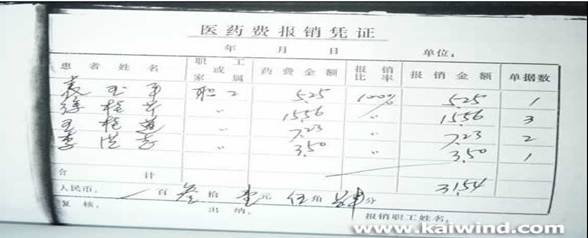 医药费报销凭证
年 月 日 单位:
患者姓名 职工或家属 药费金额 报销比率 报销金额 单据数
职工 5.25 100% 5.25 1
〃 15.56 〃 15.56 3
王 〃 7.23 〃 7.23 2
李 〃 3.50 〃 3.50 1
合计 31.54
人民币: 百叁拾壹元伍角肆分
复核: 出纳: 报销职工姓名:
www.kaiwind.com